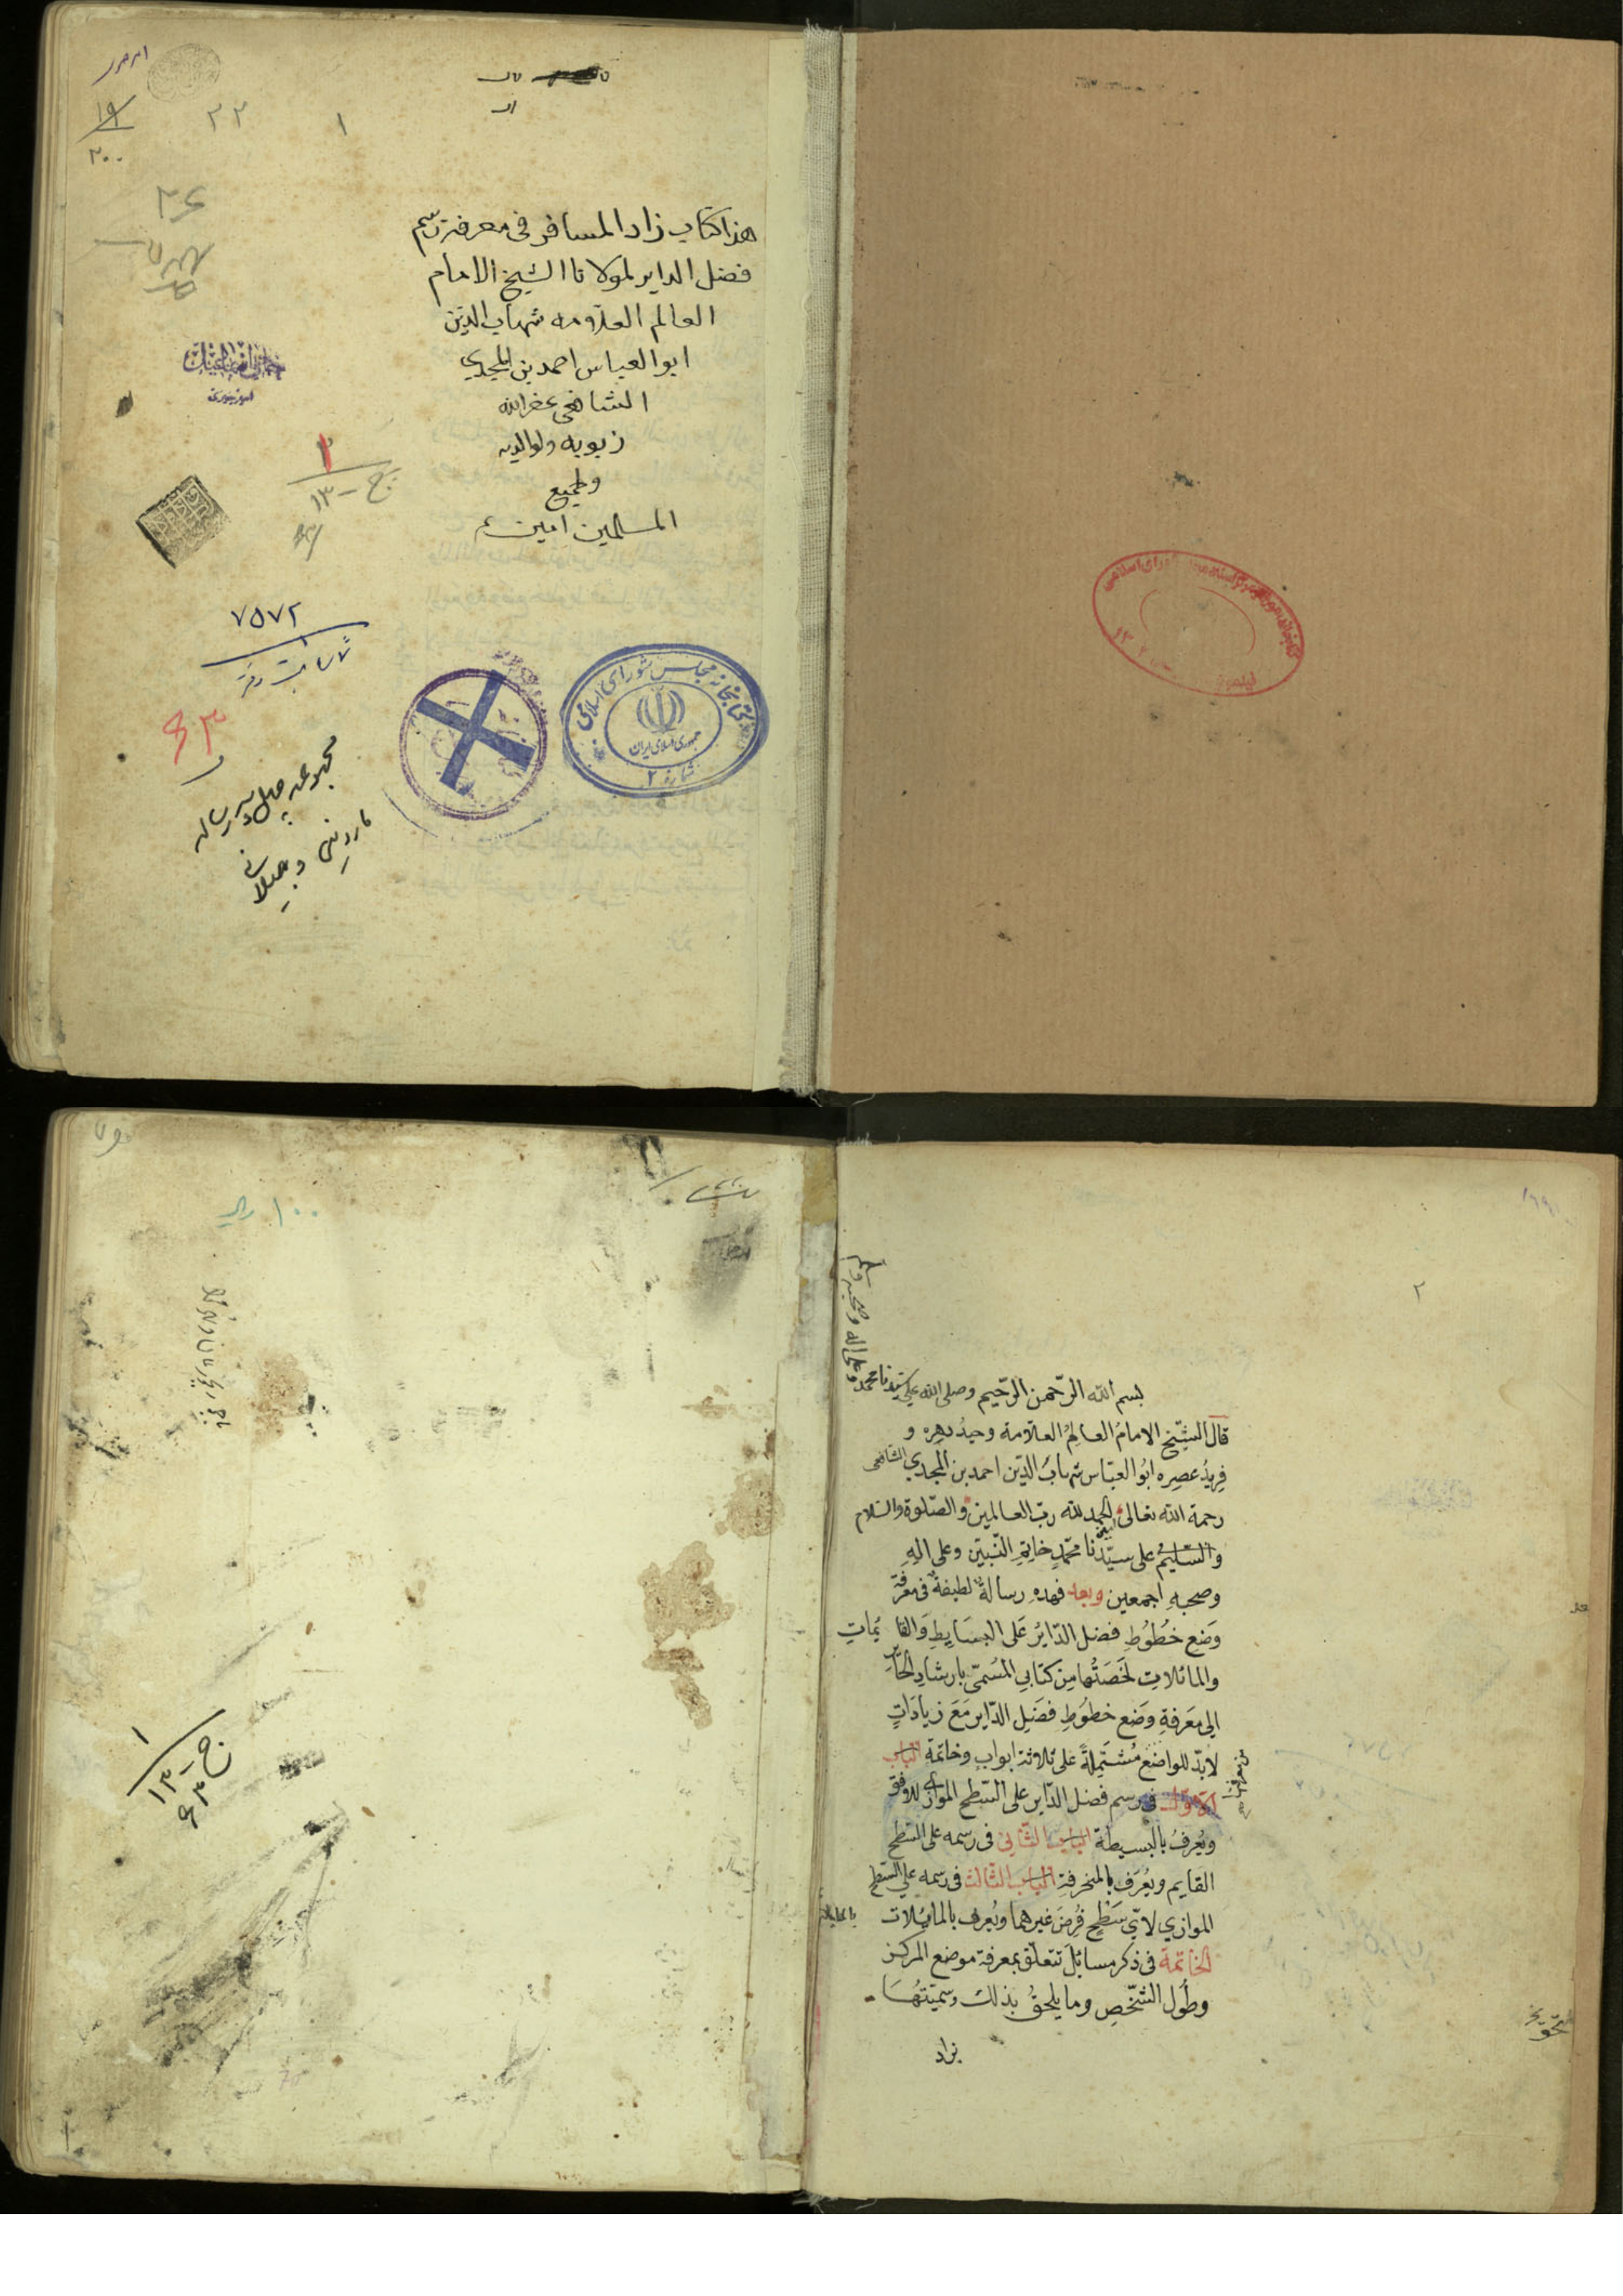 هذا كتاب زاد المسافر فى معرفة رسم
فضل الداير لمولانا الشيخ الامام
العالم العلامه شهاب الدين
ابو العباس احمد بن المجدي
الشافعى غفر الله
ذنوبه ولوالديه
ولجميع
المسلمين امين
۱
۲۲
۱۹
۲۰۰
۱
ج - ۱۳
۷۵۷۲
ثبت دفتر
۶۳
مجموعه چهل و سه رساله
كتابخانه مجلس شوراى اسلامى
جمهورى اسلامى ايران
شماره ۲
شوراى اسلامى
۲
بسم الله الرّحمن الرّحيم وصلى الله على سيّدنا محمد
وعلى اله وصحبه وسلم
قال الشيّخ الامامُ العالِمُ العلّامة وحيدُ دهره و
فريدُ عصرِه ابُو العبّاس شهابُ الدّين احمد بن المجدي الشافعى
رحمة الله تعالى الحمد لله ربّ العالمين والصّلوة والسّلام
والتسّليمُ على سيّدنا محمّدٍ خاتِمِ النّبيّن وعلى الِهِ
وصحبهِ اجمعين وبعد فهذهِ رسالةٌ لطيفةٌ فى معرفة
وَضعِ خُطُوُطِ فضل الدّايرُ عَلى البسَايِطِ وَالقائمات
والمائلاتِ لخّصَتُها مِن كتابي المسُمّى بارشادِ الحَائِر
الى مَعَرفةِ وَضع خطوُطِ فضَلِ الدّاير مَعَ زيادَاتٍ
لابدّ للواضع مُشتَمِلةً على ثلاثة ابوابٍ وخاتمَة الباب
الاوّل فى رسم فضل الدّاير على السّطح الموازي للافق
ويُعرفُ بالبسيطة الباب الثّاني فى رسمه على السّطح
القايم ويُعُرَف بالمنحرفة الباب الثّالث فى رسمه على السّطح
الموازي لايّ سَطْحٍ فُرِضَ غيرهما ويُعرف بالمائلات
الخاتمة فى ذكر مسائلَ تتعلّق بمعرفة موضع المركز
وطُول الشّخصِ وما يلحقُ بذلك وسميّتُهَا
بزاد
۱۰۰ ريال
۱
ج - ۱۳
۶۳